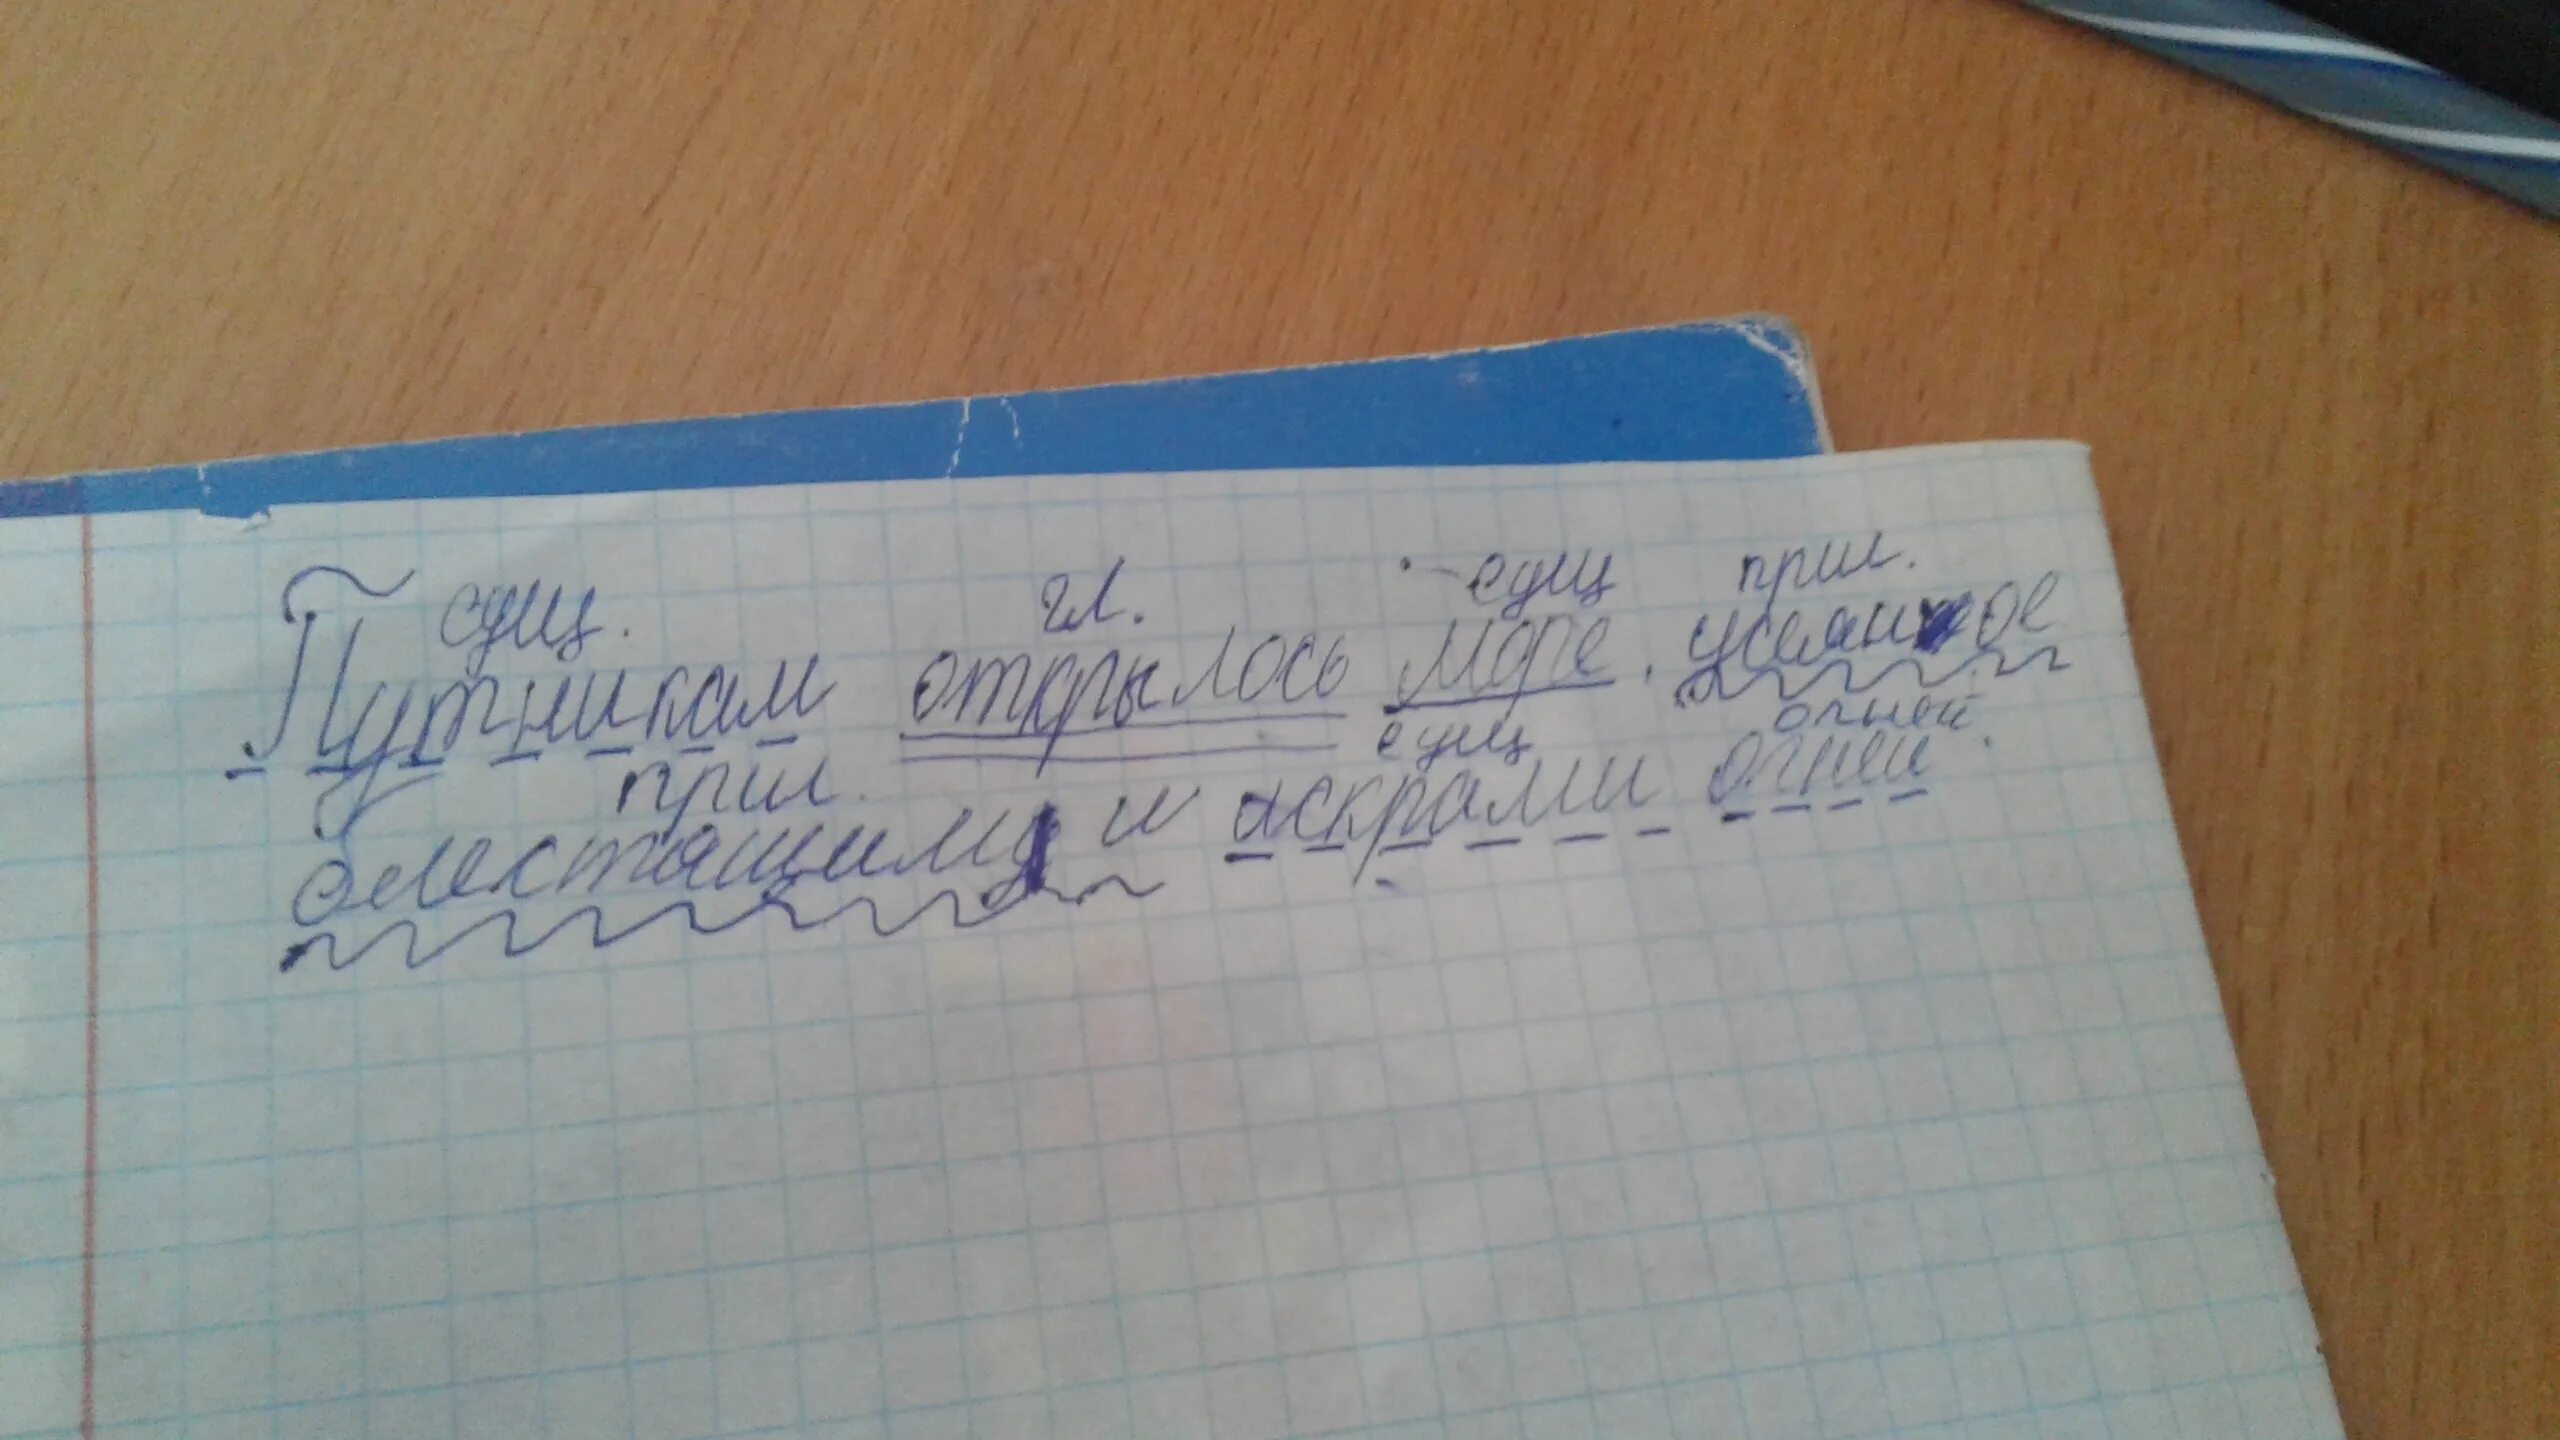 сущ. гл. сущ прил.
Путникам открылось море, усеянное
прил. сущ огней
блестящими искрами огней.